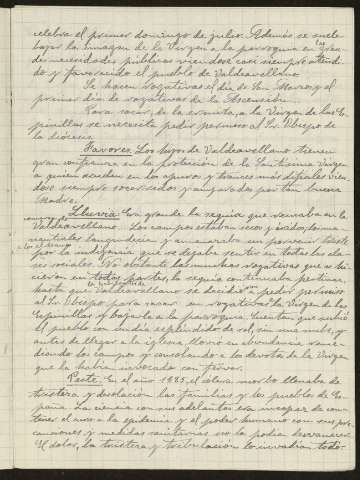 celebra el primer domingo de julio. Además se suele
bajar la imagen de la Virgen a la parroquia en las gran-
des necesidades públicas viendose casi siempre atendi-
do y favorecido el pueblo de Valdeavellano.
Se hacen rogativas el día de San Marcos y el
primer día de rogativas de la Ascensión.
Para sacar de la ermita a la Virgen de las Es-
pinillas se necesita pedir permiso al Sr. Obispo de
la diócesis.
Favores. Los hijos de Valdeavellano tienen
gran confianza en la protección de la Santísima Virgen
a quien acuden en los apuros y trances más dificiles vien-
dose siempre socorridos y amparados por tan buena
Madre.
Lluvia. Era grande la sequía que reinaba en
Valdeavellano. Los campos estaban secos y áridos, los
languidecía y amenazaba un porvenir triste
por la indigencia que se dejaba sentir en todas las cla-
ses sociales. No obstante las muchas rogativas que se hi-
cieron en todas partes, la sequía continuaba pertinaz
hasta que Valdeavellano se decidió a pedir permiso
al Sr. Obispo para sacar en rogativas a la Virgen de las
Espinillas y bajarla a la parroquia. Cuentan que subió
el pueblo con un día esplendido de sol, sin una nube, y
antes de llegar a la iglesia llovió en abundancia reme-
diando los campos y consolando a los devotos de la Virgen
que la habían invocado con fervor.
Peste. En el año 1885, el cólera morbo llenaba de
tristeza y desolación las familias y los pueblos de Es-
paña. La ciencia con sus adelantos era incapaz de con-
tener el curso a la epidemia y el poder humano con sus pre-
cauciones y medidas sanitarias no la podía desvanecer.
El dolor, la tristeza y tribulación lo invadían todo.